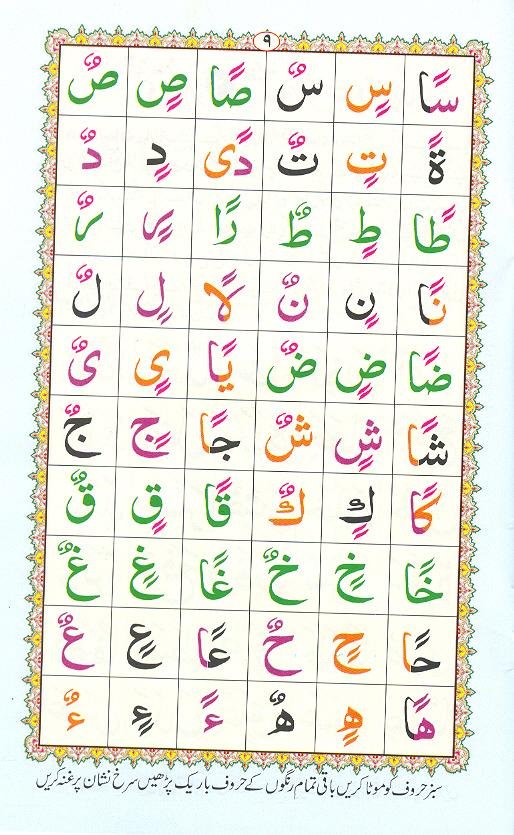 ۹
سًا سٍ سٌ صًا صٍ صٌ
ةً تٍ تٌ دًی دٍ دٌ
طًا طٍ طٌ رًا رٍ رٌ
نًا نٍ نٌ لًا لٍ لٌ
ضًا ضٍ ضٌ يًا یٍ یٌ
شًا شٍ شٌ جًا جٍ جٌ
كًا كٍ كٌ قًا قٍ قٌ
خًا خٍ خٌ غًا غٍ غٌ
حًا حٍ حٌ عًا عٍ عٌ
هًا هٍ هٌ ءً ءٍ ءٌ
سبز حروف کو موٹا کریں باقی تمام رنگوں کے حروف باریک پڑھیں سرخ نشان پر غنہ کریں